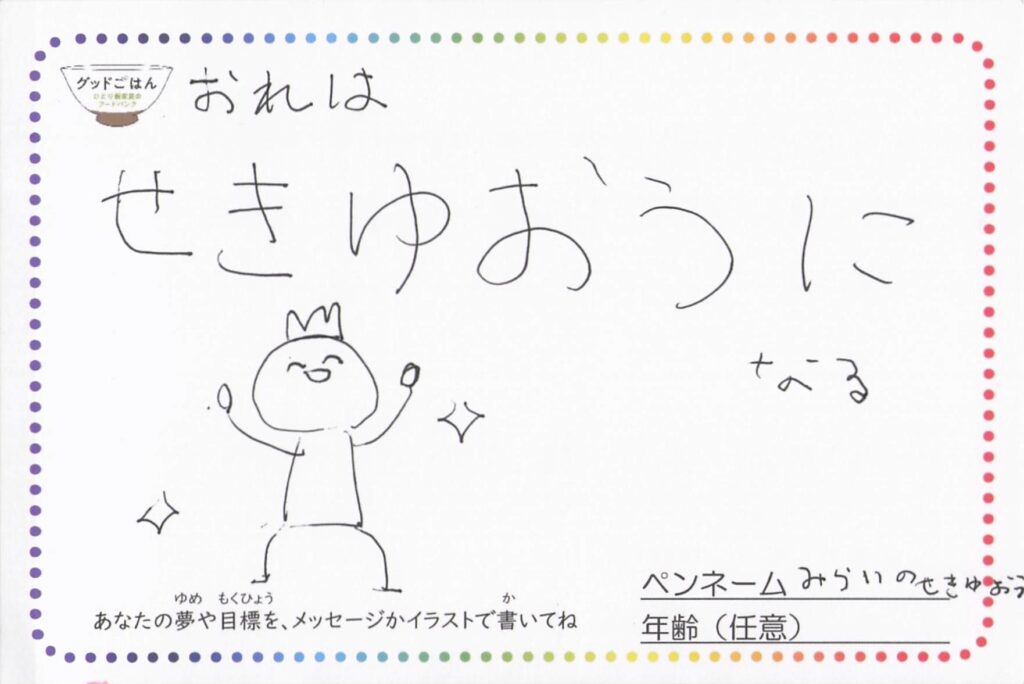 グッドごはん
ひとり親家庭の
フードバンク
おれは
せきゆおうに
なる
ゆめ もくひょう か
あなたの夢や目標を、メッセージかイラストで書いてね
ペンネーム みらいのせきゆおう
年齢（任意）